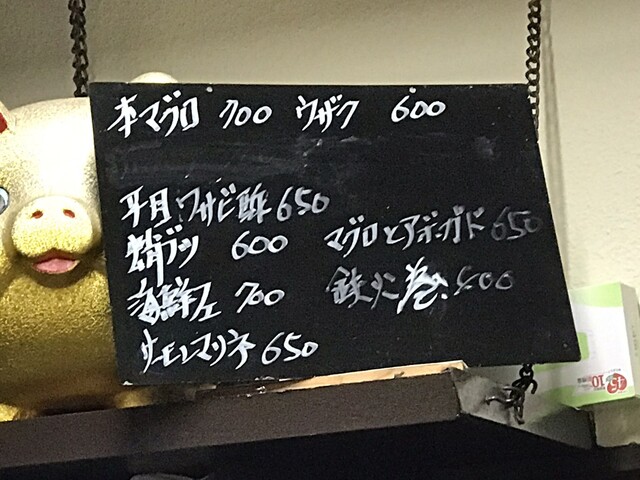 本マグロ 700 ウザク 600
平目ワサビ酢 650
鯖ブツ 600
マグロとアボガド 650
海鮮ユ 700
鉄火巻 400
サーモンマリネ 650
10